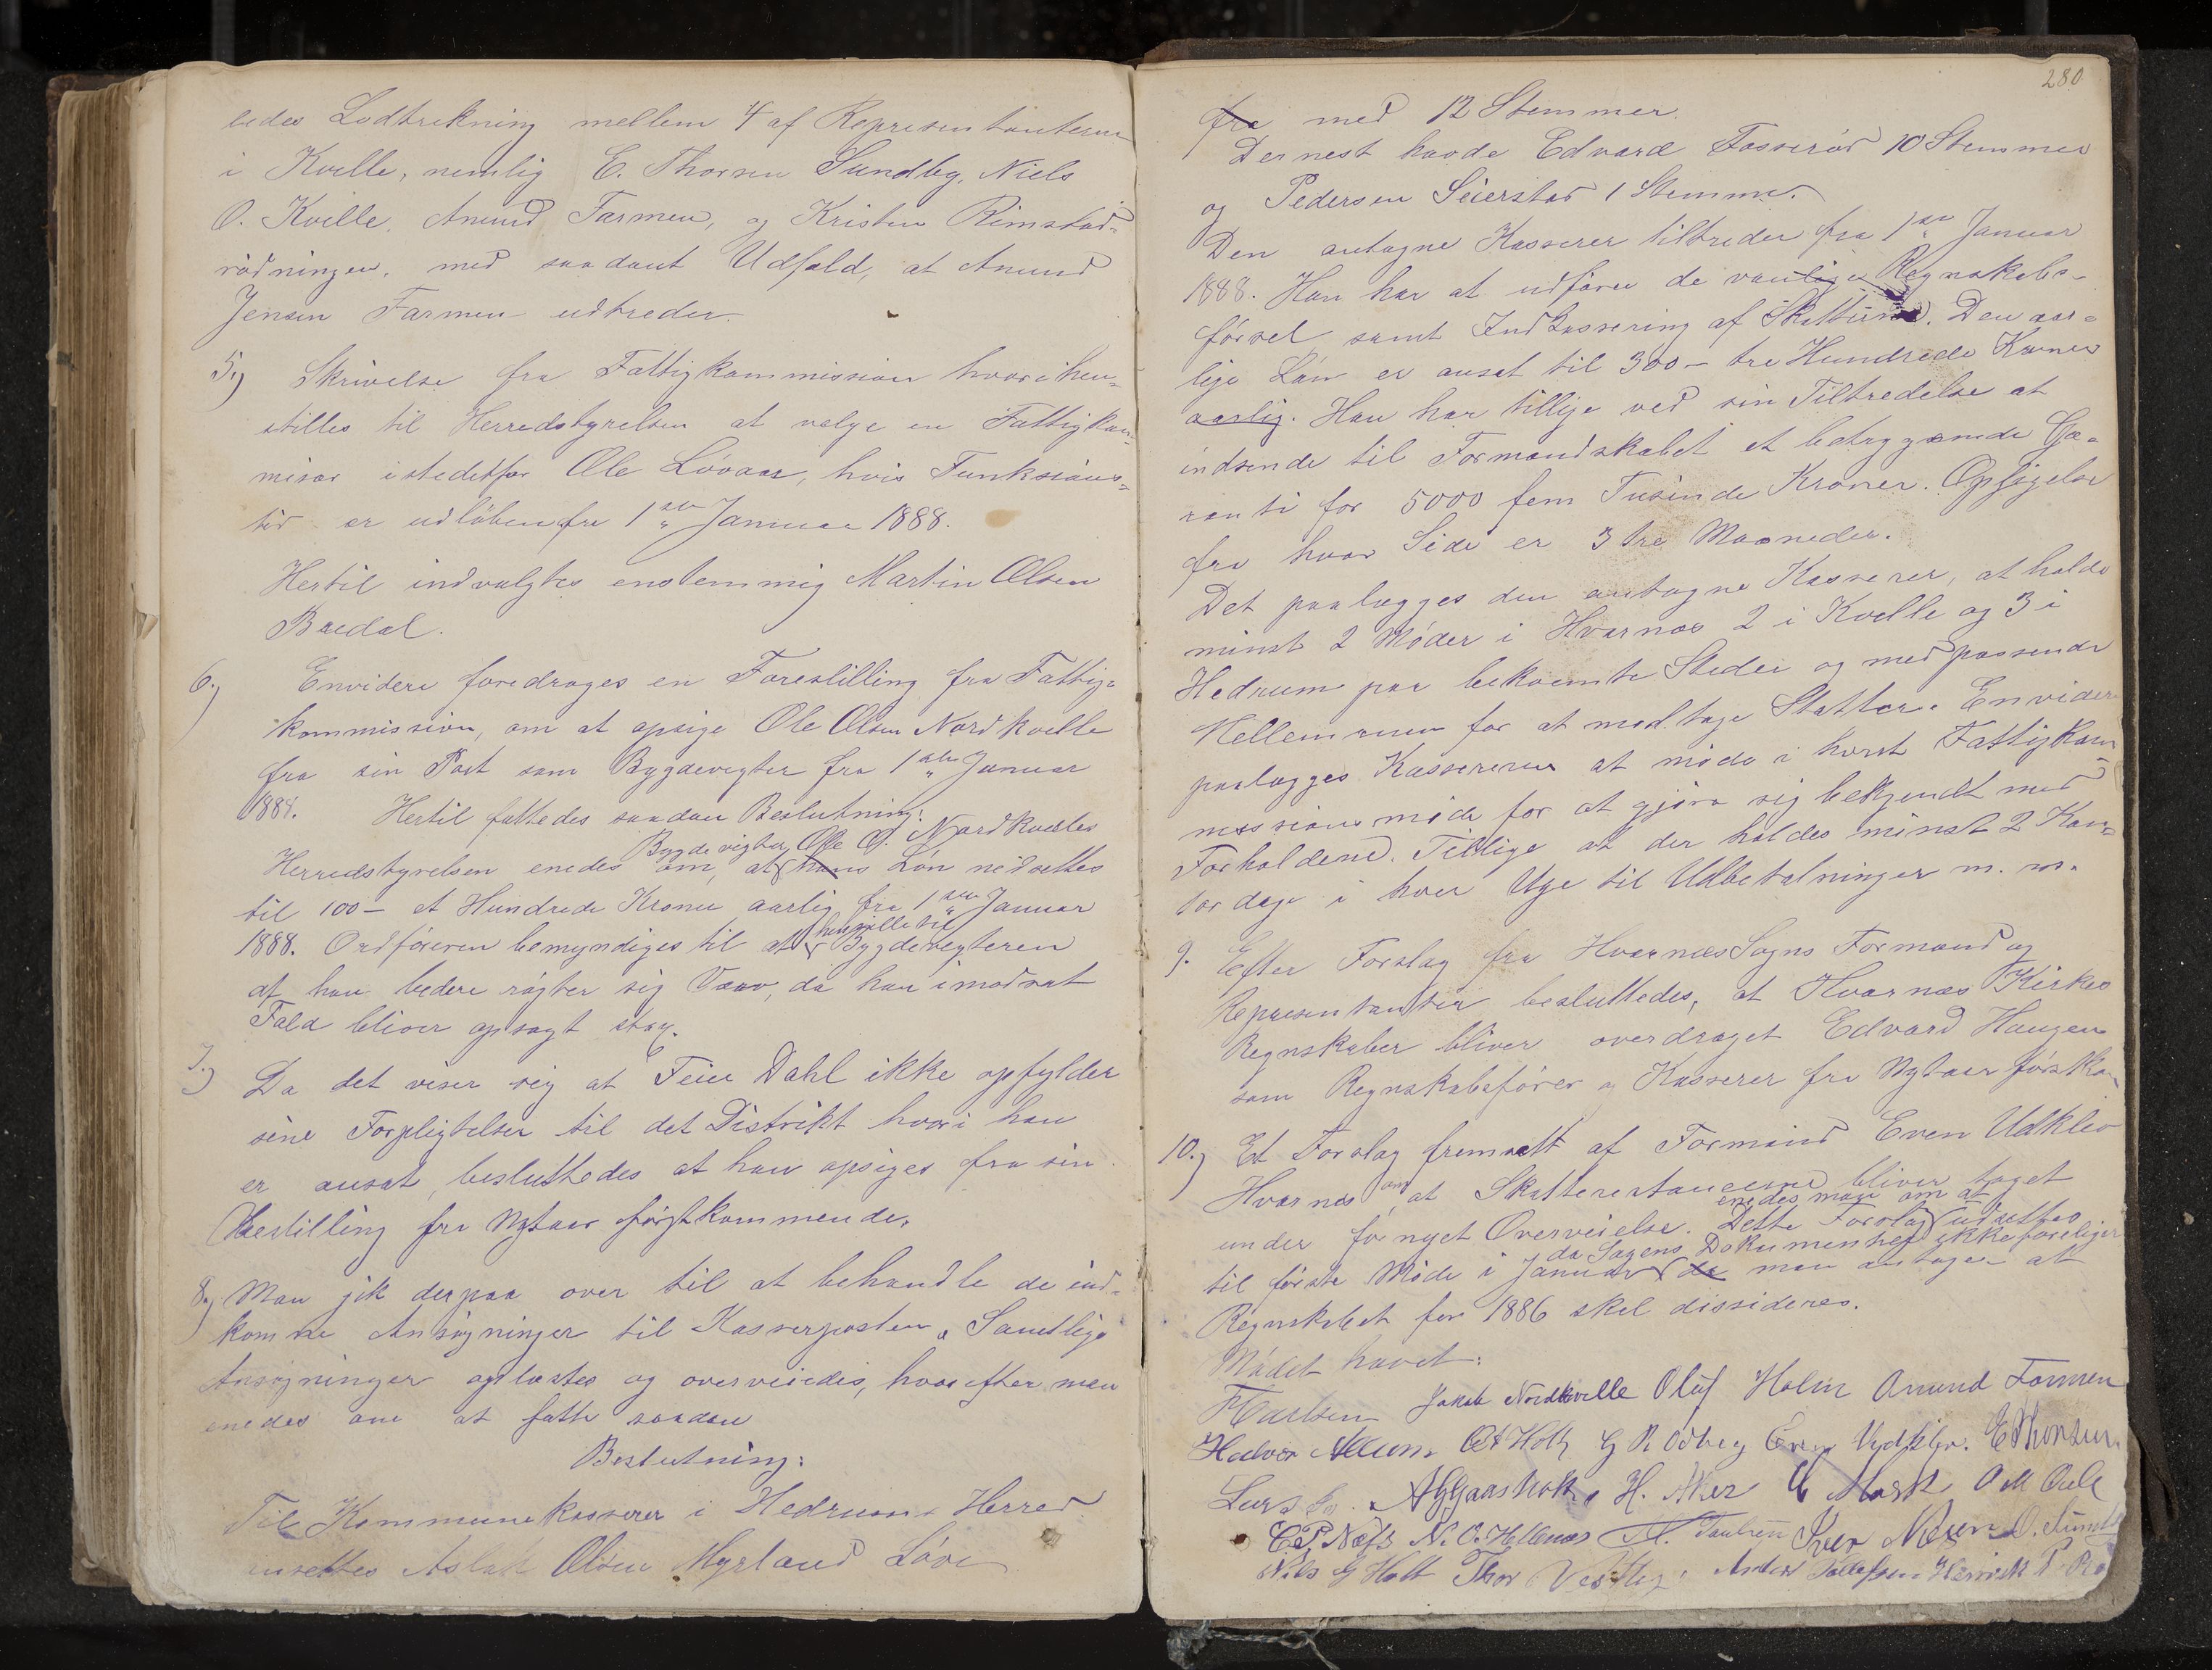 ledes Lodtrekning mellem 4 af Representanterne
i Kvelle, nemlig E. Thorsen Sundby, Niels
O. Kvelle, Amund Farmen, og Kristen Rimstad-
rödningen, med saadant Udfald, at Amund
Jensen Farmen udtreder.
5.) Skrivelse fra Fattigkommission hvori hen-
stilles til Herredstyrelsen at velge en Fattigkom-
misær istedetfor Ole Lövaas, hvis Funksions-
tid er udlöben fra 1ste Januar 1888.
Hertil indvalgtes enstemmig Martin Olsen
Bredal.
6.) Envidere foredroges en Forestilling fra Fattig-
kommission, om at opsige Ole Olsen Nordkvelle
fra sin Post som Bygdevegter fra 1ste Januar
1888. Hertil fattedes saadan Beslutning:
Bygdevigter Ole O. Nordkvelles
Herredstyrelsen enedes om, at hans Lön nedsettes
til 100 – et Hundrede Kroner aarlig fra 1ste Januar
henstille til
1888. Ordföreren bemyndiges til at Bygdevegteren
at han bedere rögter sig Vaar, da han imodsat
Fald bliver opsagt strax.
7.) Da det viser sig at Feier Dahl ikke opfylder
sine Forpligtelser til det Distrikt hvori han
er ansat, besluttedes at han opsiges fra sin
Bestilling fra Nytaar förstkommende.
8.) Man gik derpaa over til at behandle de ind-
komne Ansögninger til Kasserposten. Samtlige
Ansögninger oplæstes og overveiedes, hvorefter man
enedes om at fatte saadan
Beslutning:
Til Kommunekasserer i Hedrums Herred
ansettes Aslak Olsen Myrland Löve
280
fra med 12 Stemmer.
Dernest havde Edvard Fosseröd 10 Stemmer
og Pedersen Seierstad 1 Stemme.
Den antagne Kasserer tiltreder fra 1ste Januar
1888. Han har at udföre de vanlige Regnskabs-
försel samt Indkassering af Skatterne. Den aar-
lige Lön er ansat til 300 – tre Hundrede Kroner
aarlig. Han har tillige ved sin Tiltredelse at
indsende til Formandskabet et betryggende Ga-
ranti for 5000 fem Tusinde Kroner. Opsigelse
fra hver Side er 3 tre Maaneder.
Det paalægges den antagne Kasserer, at holde
minst 2 Möder i Hvarnæs 2 i Kvelle og 3 i
Hedrum paa bekvemte Steder og med passende
Mellemrum for at modtage Skatter. Envidere
paalægges Kassereren at möde i hvert Fattigkom-
missionsmöde for at gjöre sig bekjendt med
Forholdene. Tillige at der holdes minst 2 Kon-
tordage i hver Uge til Udbetalninger m. m.
9. Efter Forslag fra Hvarnes Sogns Formænd og
Representanter besluttedes, at Hvarnæs Kirkes
Regnskaber bliver overdraget Edvard Haugen
som Regnskabsförer og Kasserer fra Nytaar förstkom
10.) Et Forslag fremsatt af Formand Even Udklev
Hvarnes om, at Skatterestancerne bliver taget
enedes man om at
under fornyet Overveielse. Dette Forslag udsettes
da Sagens Dokumenter ikke foreliger
til förste Möde i Januar da man antager at
Regnskabet for 1886 skal dissideres.
Mödet hævet:
Jakob Nordkvelle Oluf Holm Amund Farmen
Halvor Allum Even Udklev. E Thorsen.
Lars H. Aker
C. P. Næss N. O. Hellenæs Iver
Nils G Holt Thor Anders Tollefsen Henrik